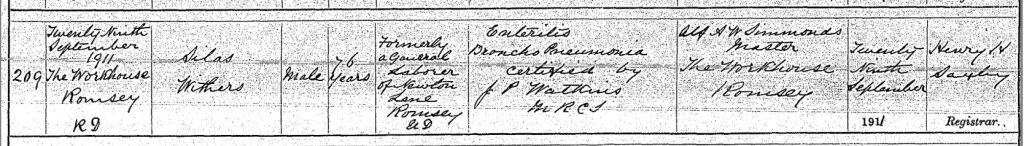 209
Twenty Ninth
September
1911
The Workhouse
Romsey
R D
Silas
Withers
Male
76
years
Formerly
a General
Laborer
of Newton
Lane
Romsey
U D
Enteritis
Broncho Pneumonia
certified by
J P Watkins
M R C S
Alf A W Simmonds
Master
The Workhouse
Romsey
Twenty
Ninth
September
1911
Henry H
Saxby
Registrar.